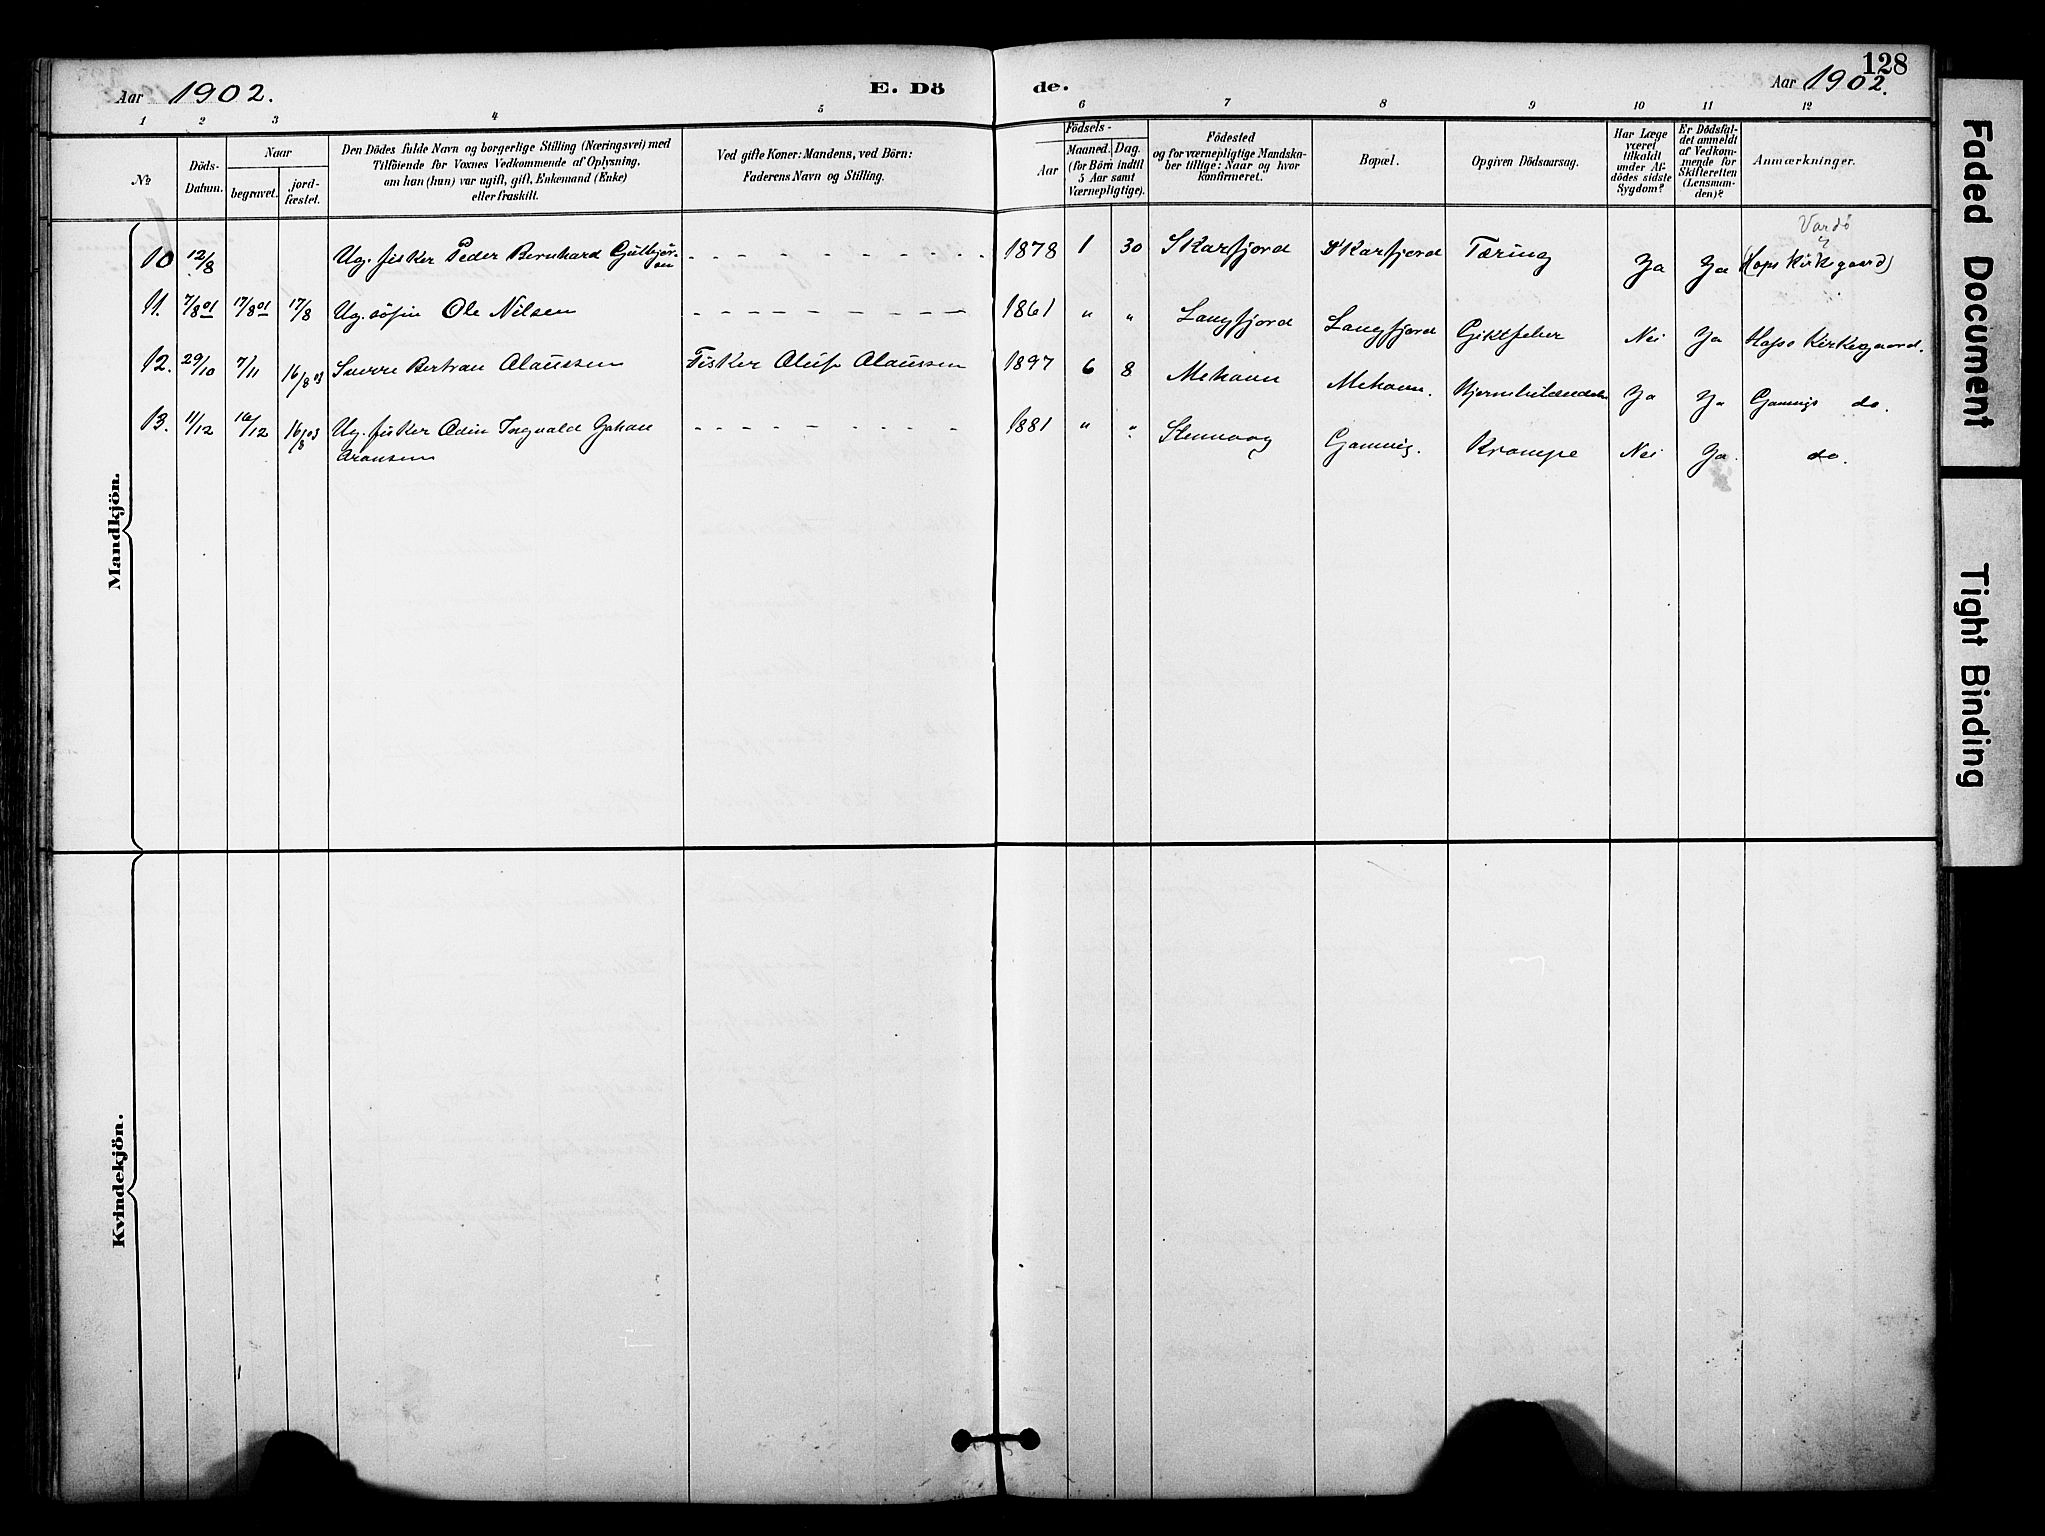 128
Aar 1902.
E. Dö
de.
Aar 1902.
1 2 3 4 5 6 7 8 9 10 11 12
№
Döds-
Datum.
Naar
begravet.
jord-
fæstet.
Den Dödes fulde Navn og borgerlige Stilling (Næringsvei) med
Tilföiende for Voxnes Vedkommende af Oplysning,
om han (hun) var ugift, gift, Enkemand (Enke)
eller fraskilt.
Ved gifte Koner: Mandens, ved Börn:
Faderens Navn og Stilling.
Födsels-
Aar
Maaned. Dag.
(for Börn indtil
5 Aar samt
Værnepligtige).
Födested
og for værnepligtige Mandska-
ber tillige: Naar og hvor
konfirmeret.
Bopæl.
Opgiven Dödsaarsag.
Har Læge
været
tilkaldt
under Af-
dödes sidste
Sygdom?
Er Dödsfal-
det anmeldt
af Vedkom-
mende for
Skifteretten
(Lensman-
den)?
Anmærkninger.
Mandkjön.
Vardö
10 12/8 Ug. fisker Peder Bernhard Gulbjör-
sen 1878 1 30 Skarfjord Skarfjord Tæring Ja Ja (Hops Kirkegaard)
11. 7/8 01 17/8 01 17/8 Ug. söfin Ole Nilsen 1861 " " Langfjord Langfjord Giktfeber Nei Ja Hops Kirkegaard.
12. 29/10 7/11 16/8 03 Sverre Bertran Olaussen Fisker Oluf Olaussen 1897 6 8 Mehavn Mehavn. Ja Ja Gamvigs do.
13. 11/12 16/12 16/8 03 Ug. fisker Odin Ingvald Johan
Aronsen 1881 " " Stenvaag Gamvig. Krampe Nei Ja. do.
Kvindekjön.
Faded Document
Tight Binding